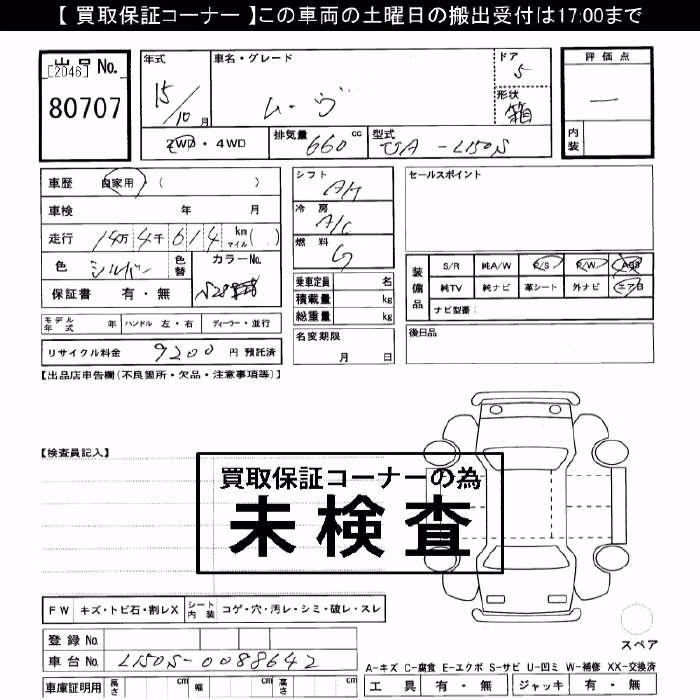 【 買取保証コーナー 】この車両の土曜日の搬出受付は17:00まで
出品 No.
[2046]
80707
年式
15/10 月
車名・グレード
ムーヴ
ドア
5
形状
箱
評価点
内装
2WD・4WD
排気量 660 cc
型式 -L150S
車歴 自家用・( )
車検 年 月
走行 14万4千614 km マイル( )
色 シルバー
色替
カラーNo.
S28
保証書 有・無
シフト
AH
冷房
A/C
燃料
G
乗車定員 名
積載量 kg
総重量 kg
名変期限
月 日
セールスポイント
装備品
S/R 純A/W P/S P/W ABS
純TV 純ナビ 革シート 外ナビ エアB
ナビ型番:
後日品
モデル年式 年 ハンドル 左・右 ディーラー・並行
リサイクル料金 9200 円 預託済
【出品店申告欄(不良箇所・欠品・注意事項等)】
【検査員記入】
買取保証コーナーの為
未検査
FW キズ・トビ石・割レX シート内装 コゲ・穴・汚レ・シミ・破レ・スレ
登録 No.
車台 No. L150S-0088642
車庫証明用 長さ cm 幅 cm 高さ cm
スペア
A-キズ C-腐食 E-エクボ S-サビ U-凹ミ W-補修 XX-交換済
工具 有・無 ジャッキ 有・無